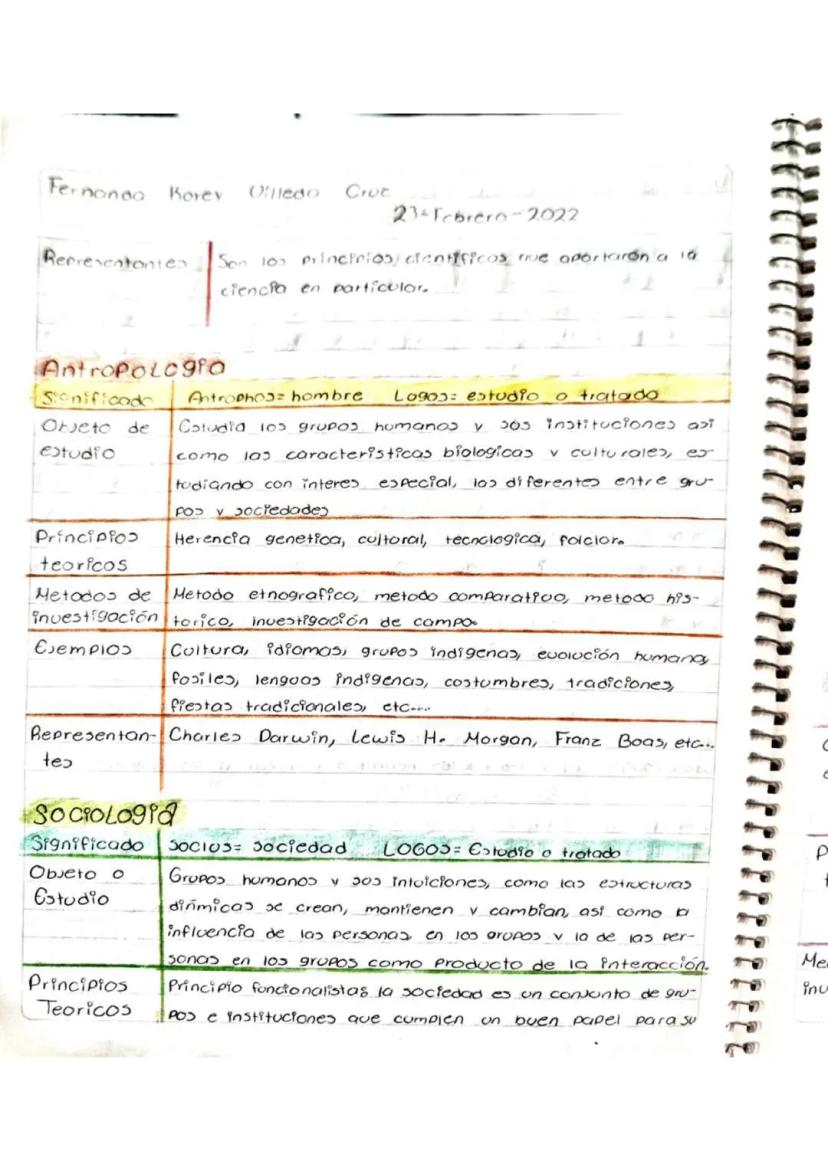 Fernando Korev Villeda Cruz
23-Febrero-2022
Representantes Son los principios cientificos que aportarón a la
ciencia en particular.
Antropologia
Significado Antrophos= hombre Logos= estudio o tratado
Objeto de Estudia los grupos humanos y sus instituciones asi
estudio como las caracteristicas biologicas y culturales, es-
tudiando con interes especial, los diferentes entre gru-
pos y sociedades
Principios Herencia genetica, cultural, tecnologica, folclor.
teoricos
Metodos de Metodo etnografico, metodo comparativo, metodo his-
investigación torico, investigación de campo.
Ejemplos Cultura, idiomas, grupos indigenas, evolución humana,
fosiles, lenguas indigenas, costumbres, tradiciones,
fiestas tradicionales, etc....
Representan- Charles Darwin, Lewis H. Morgan, Franz Boas, etc...
tes
Sociologia
Significado socius= sociedad LOGOS= Estudio o tratado
Objeto o Grupos humanos y sus intuiciones, como las estructuras
Estudio dinmicas se crean, mantienen y cambian, asi como la
influencia de las personas en los grupos y la de las per-
sonas en los grupos como producto de la interacción.
Principios Principio funcionalistas la sociedad es un conjunto de gru-
Teoricos pos e instituciones que cumplen un buen papel para su
Me
inv